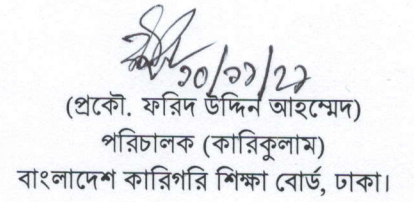 ১০/১১/২১
(প্রকৌ. ফরিদ উদ্দিন আহম্মেদ)
পরিচালক (কারিকুলাম)
বাংলাদেশ কারিগরি শিক্ষা বোর্ড, ঢাকা।